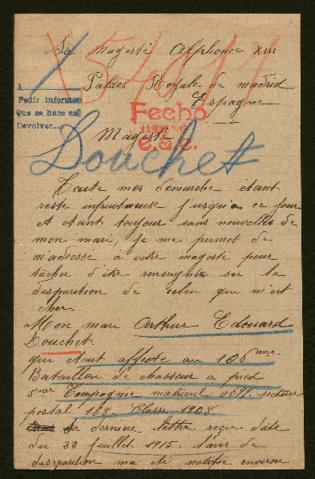 Sa Majesté Alphonse XIII
Palais Royale de madrid
Espagne
A
Pedir informes
Que se hace en
Devolver
Fecho
Majesté
e.a.c.
Douchet
Toute mes demarche étant
reste infructueuse jusqu'a ce jour
et etant toujour sans nouvelles de
mon mari, je me permet de
m'adresse a votre majesté pour
tacher d'être renseignée sur la
disparition de celui qui m'est
cher.
Mon mari Arthur Edouard
Douchet
qui etait affecté au 106 me
Bataillon de chasseur a pied
5 me Compagnie matricul secteur
postal 168. Classe 1908
Sa derniere lettre reçue date
du juillet 1915. L'avis de
disparition m'a été notifié environ